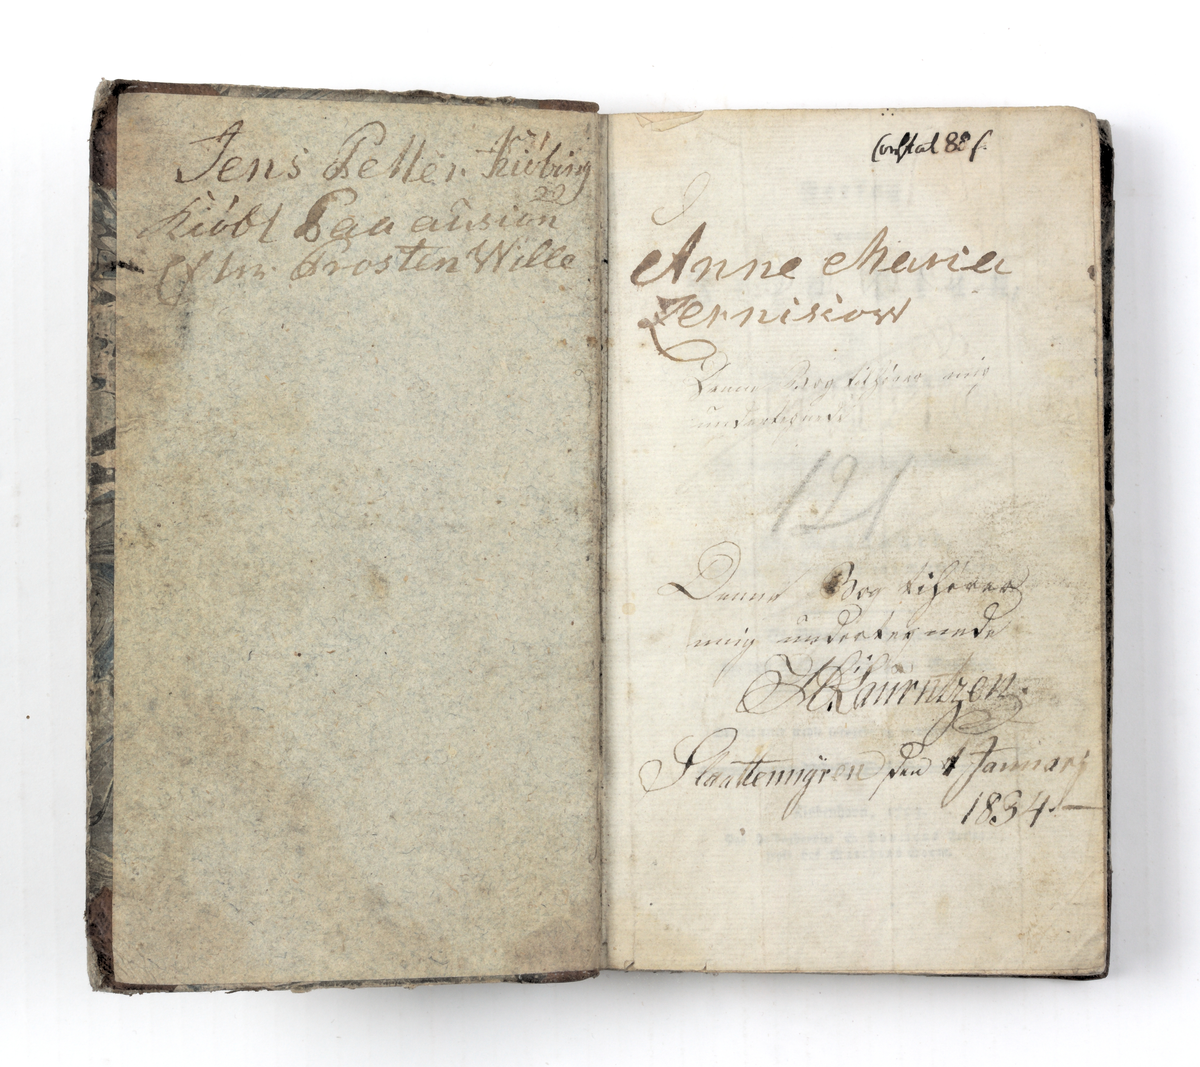 Jens Petter Kiöbing
Kiöbt Paa ausion
Efter Trosten Wille
Costal 88 s
Anne Maria
Zernisiow
Denne Bog tilhører mig
undertegnede
121
Denne Bog tilhører
mig undertegnede
Laurntzen
Slaattemyren den 4 Januarj
1834